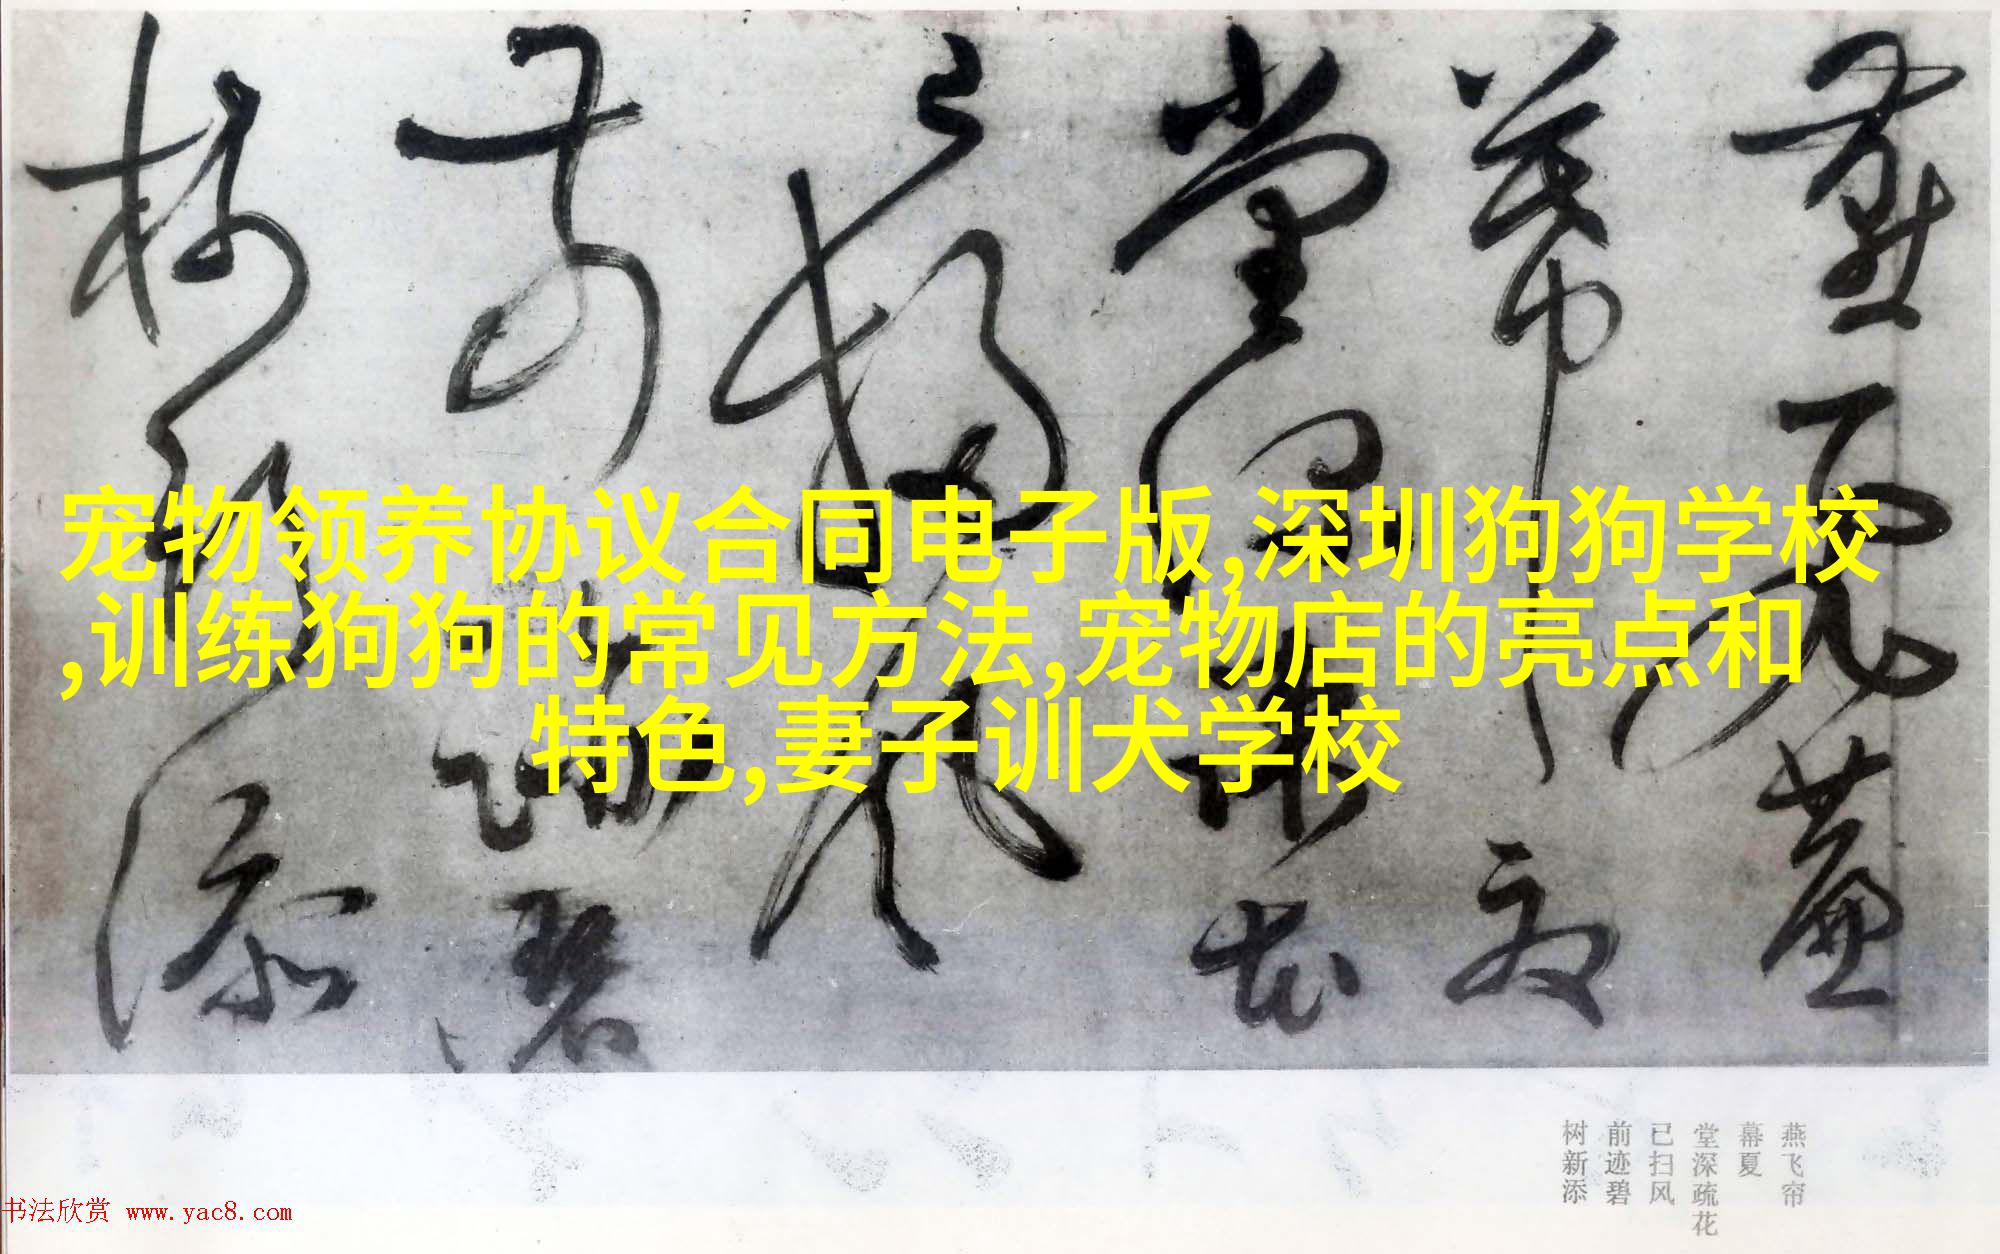 燕飞帘
幕夏
堂深疏花
已扫风
前迹碧
树新添
宠物领养协议合同电子版,深圳狗狗学校
,训练狗狗的常见方法,宠物店的亮点和
特色,妻子训犬学校
燕飞帘
幕夏
堂深疏花
已扫风
前迹碧
树新添
书法欣赏 www.yac8.com